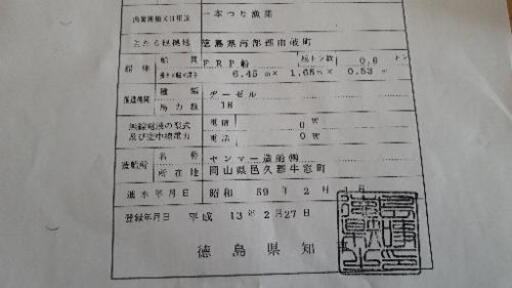 漁業種類又は用途 一本つり漁業
主たる根拠地 徳島県海部郡由岐町
船体 船質 FRP船 総トン数 0.6 トン
長さ×幅×深さ 6.45m× 1.65m× 0.53m
推進機関 種類 ヂーゼル
馬力数 18
無線電波の型式 電信 0W
及び空中線電力 電話 0W
造船所 名称 ヤンマー造船㈱
所在地 岡山県邑久郡牛窓町
進水年月日 昭和 59年 2月 日
登録年月日 平成 13年 2月27日
徳島県知事